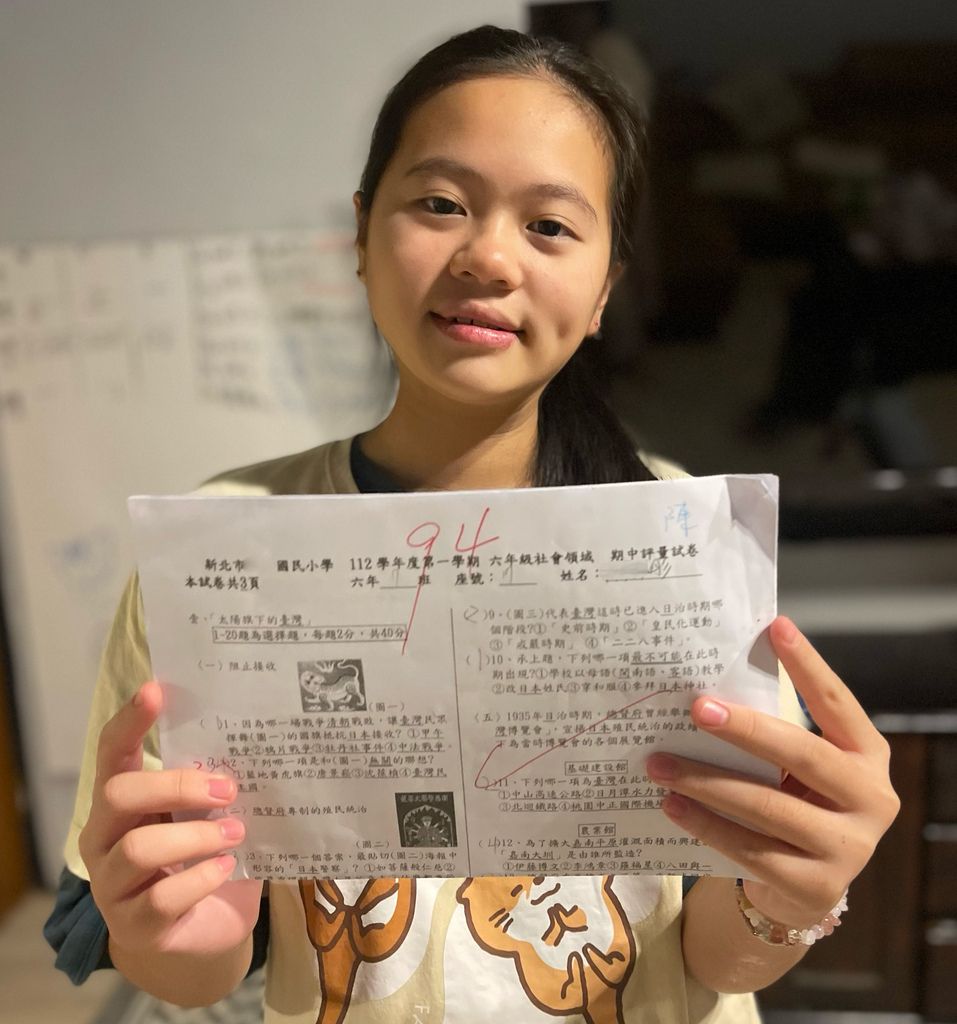 94
陳
新北市 國民小學 112 學年度第一學期 六年級社會領域 期中評量試卷
本試卷共3頁 六年 班 座號： 姓名： 彤
壹、「太陽旗下的臺灣」
1-20題為選擇題，每題2分，共40分
(一) 阻止接收
(圖一)
( )1、因為哪一場戰爭清朝戰敗，讓臺灣民眾
揮舞(圖一)的國旗抵抗日本接收？①甲午
戰爭②鴉片戰爭③牡丹社事件④中法戰爭。
2、下列哪一項是和(圖一)無關的聯想？
①藍地黃虎旗②唐景崧③沈葆楨④臺灣民
主國。
(二) 總督府專制的殖民統治
(圖二)
)3、下列哪一個答案，最貼切(圖二)海報中
形容的「日本警察」？①如菩薩般仁慈②
(2)9、(圖三)代表臺灣這時已進入日治時期哪
個階段?①「史前時期」②「皇民化運動」
③「戒嚴時期」 ④「二二八事件」。
(1)10、承上題，下列哪一項最不可能在此時
期出現?①學校以母語(閩南語、客語)教學
②改日本姓氏③穿和服④參拜日本神社。
(五) 1935年日治時期，總督府曾經舉辦
灣博覽會」，宣揚日本殖民統治的政績
下為當時博覽會的各個展覽館。
基礎建設館
(2)11、下列哪一項為臺灣在此時
①中山高速公路②日月潭水力發
③北迴鐵路④桃園中正國際機場
農業館
(4)12、為了擴大嘉南平原灌溉面積而興建
「嘉南大圳」是由誰所監造？
①伊藤博文②李鴻章③羅福星④八田與一